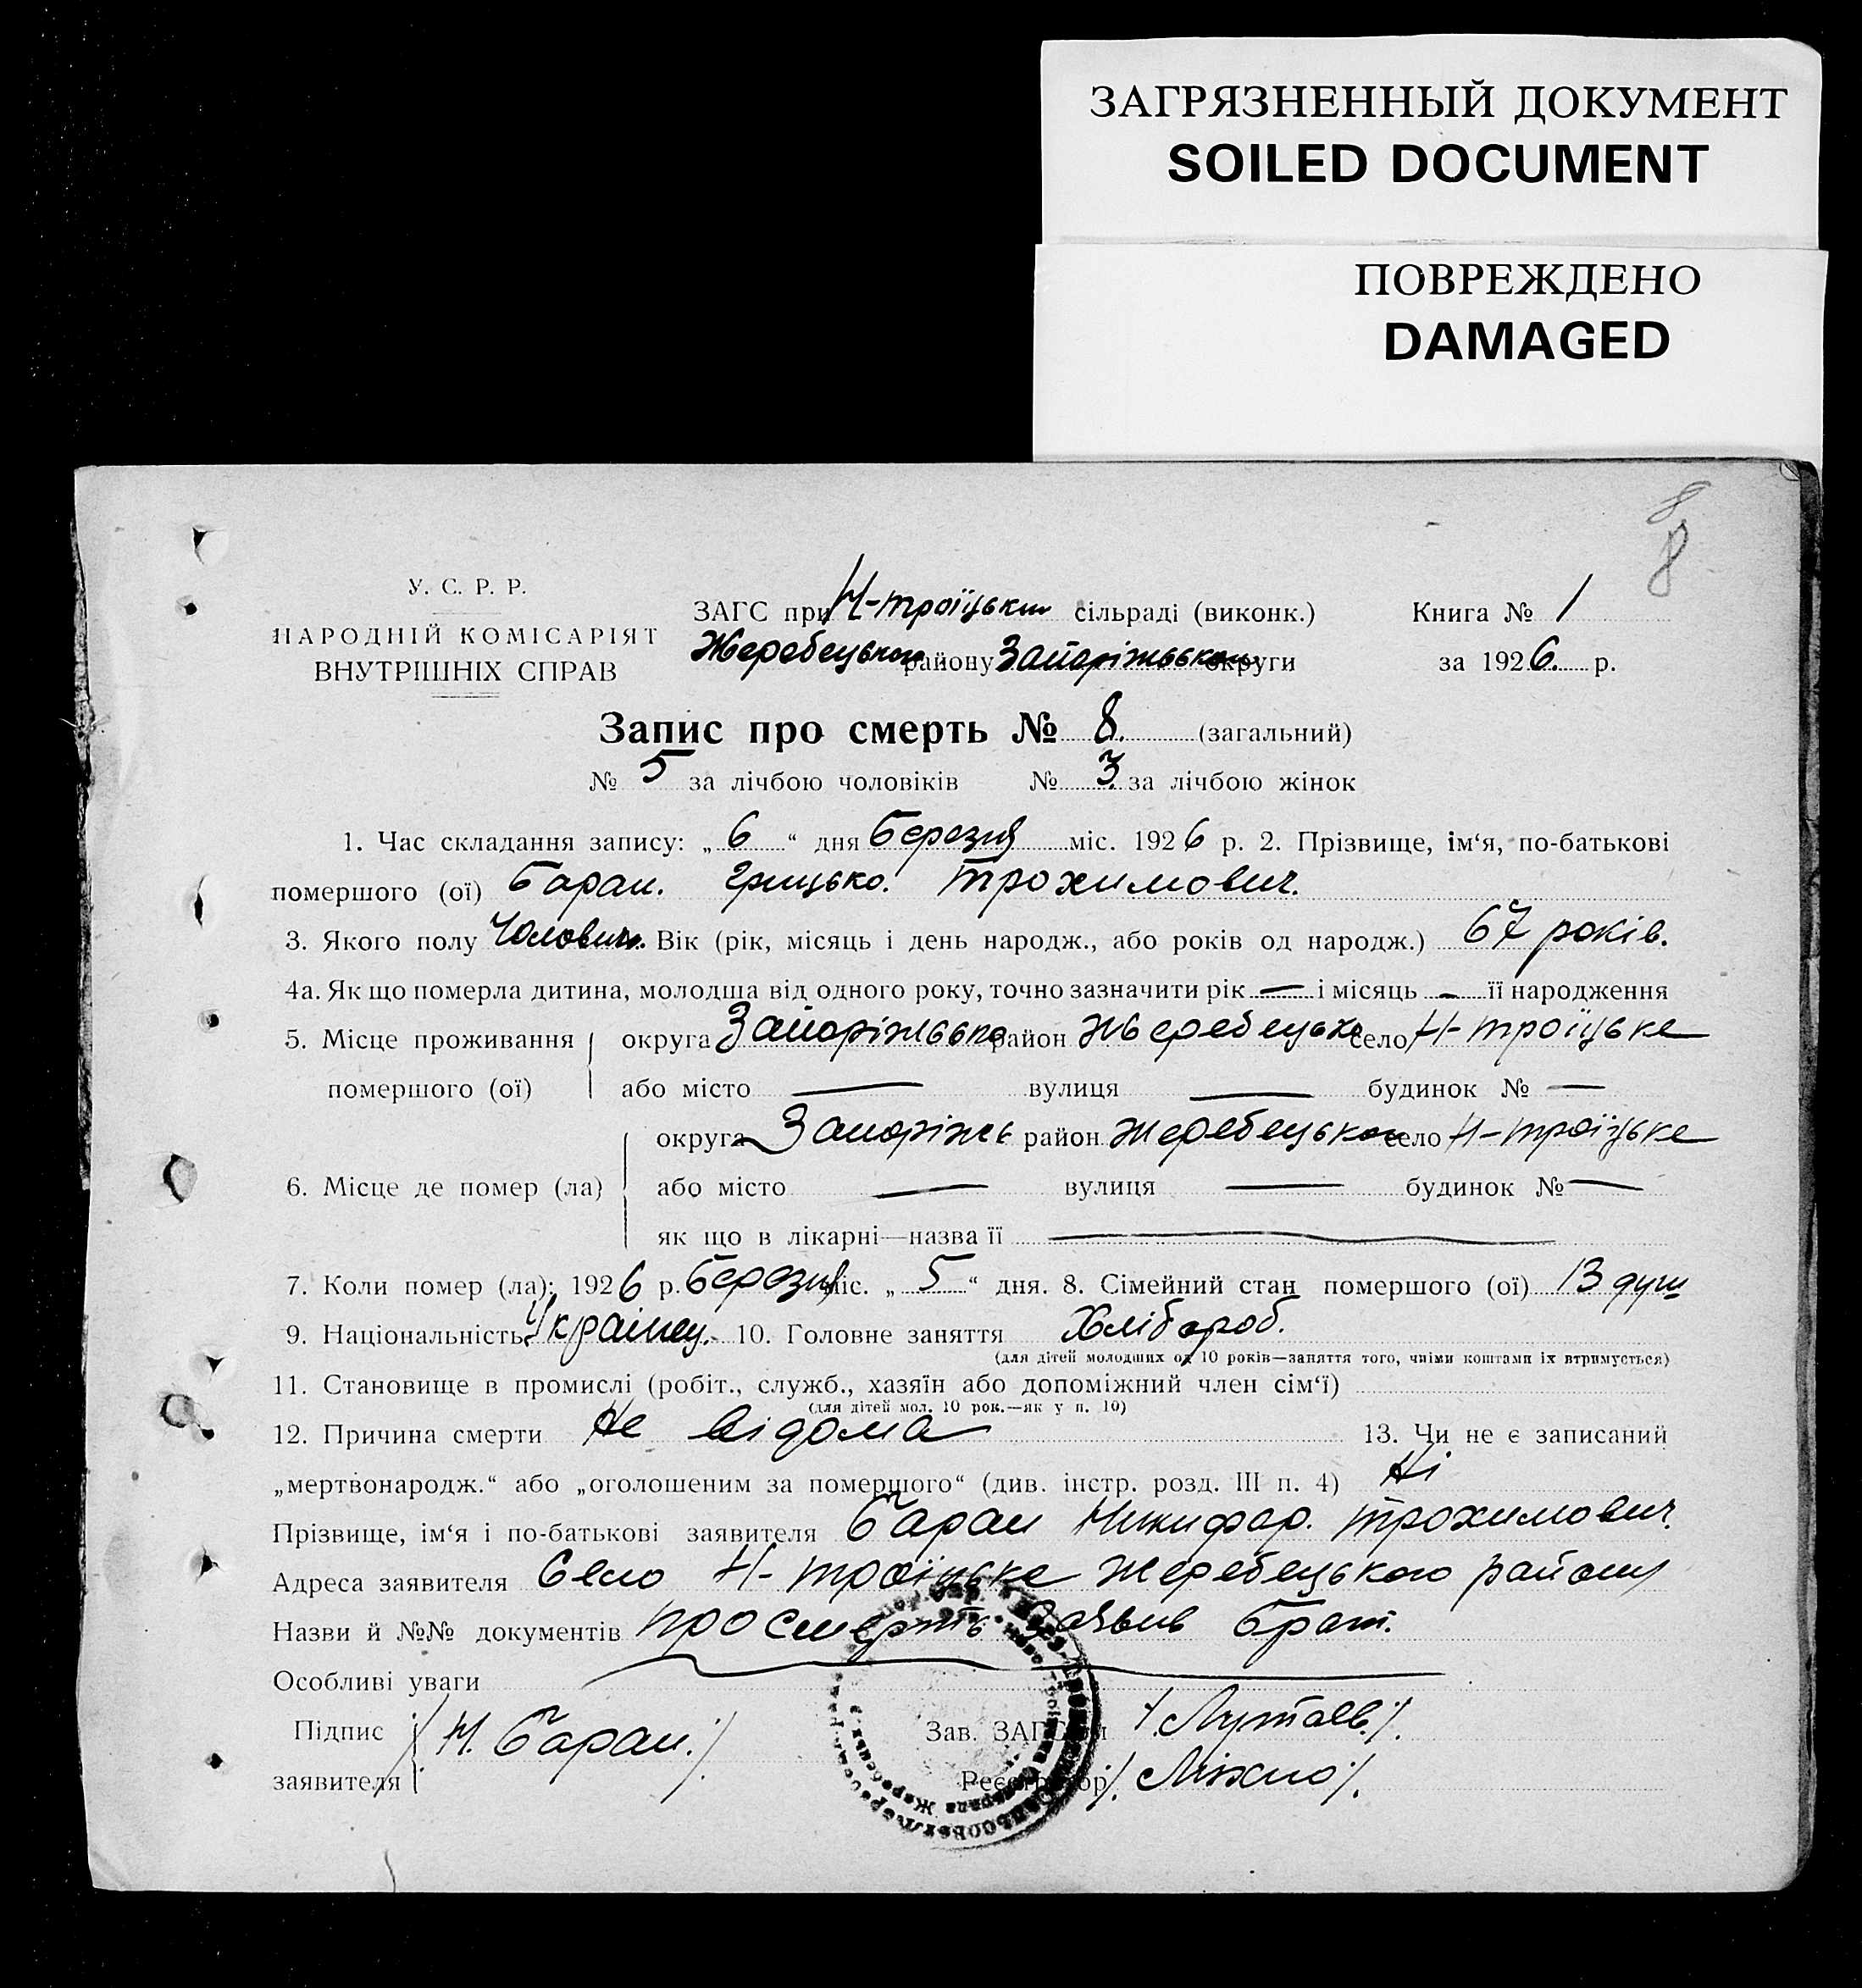 ЗАГРЯЗНЕННЫЙ ДОКУМЕНТ
SOILED DOCUMENT
ПОВРЕЖДЕНО
DAMAGED
8
8
У. С. Р. Р.
НАРОДНІЙ КОМІСАРІЯТ
ВНУТРІШНІХ СПРАВ
ЗАГС при Н-троїцькій сільраді (виконк.) Книга № 1
Жеребецького району Запоріжської округи за 1926. р.
Запис про смерть № 8. (загальний)
№ 5 за лічбою чоловіків № 3. за лічбою жінок
1. Час складання запису: „ 6 “ дня березня міс. 1926 р. 2. Прізвище, ім‘я, по-батькові
помершого (ої) Баран. Грицько. Трохимович.
3. Якого полу Чоловіч. Вік (рік, місяць і день народж., або років од народж.) 67 років.
4а. Як що померла дитина, молодша від одного року, точно зазначити рік — і місяць — її народження
5. Місце проживання округа Запоріжська район Жеребецьке село Н-троїцьке
помершого (ої) або місто — вулиця — будинок № —
округа Запоріжсь район Жеребецького село Н-троїцьке
6. Місце де помер (ла) або місто — вулиця — будинок № —
як що в лікарні—назва її —
7. Коли помер (ла): 1926 р. березня міс. „ 5 “ дня. 8. Сімейний стан помершого (ої) 13 душ
9. Національність Українец. 10. Головне заняття Хлібороб.
(для дітей молодших од 10 років—заняття того, чиїми коштами їх втримується)
11. Становище в промислі (робіт., служб., хазяїн або допоміжний член сім‘ї)
(для дітей мол. 10 рок.—як у п. 10)
12. Причина смерти Не відома 13. Чи не є записаний
„мертвонародж.“ або „оголошеним за помершого“ (див. інстр. розд. III п. 4) Ні
Прізвище, ім‘я і по-батькові заявителя Баран Никифор. Трохимович.
Адреса заявителя Село Н-троїцьке Жеребецького району
Назви й №№ документів про смерть заявив брат.
Особливі уваги
Підпис /Н. Баран./ Зав. ЗАГС'ом
заявителя Реєстратор